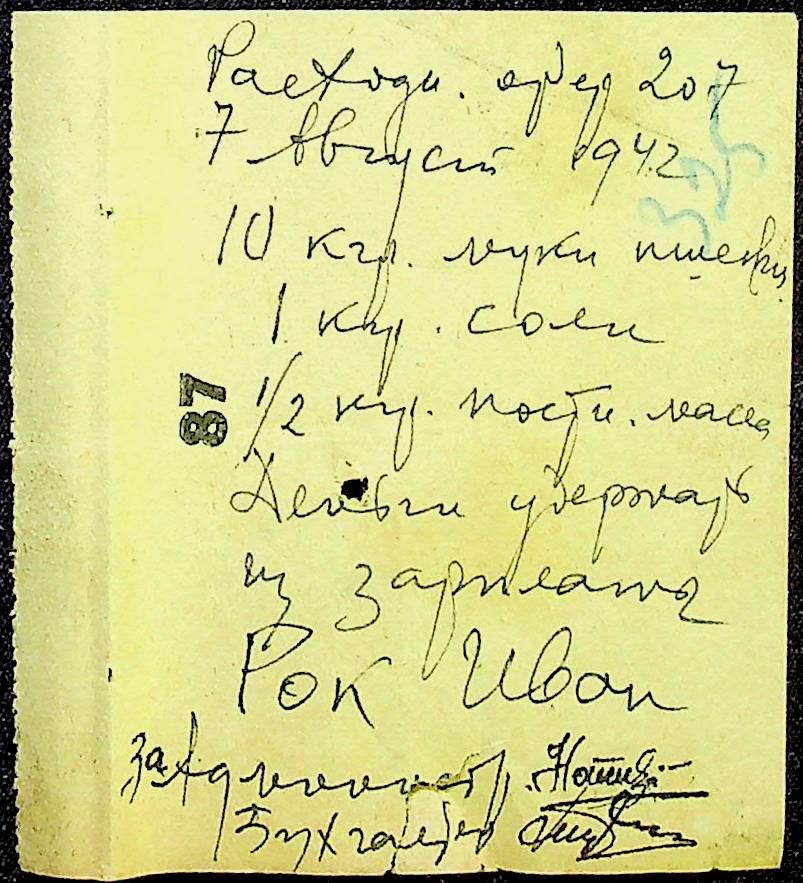 Расходн. ордер 207
7 Август 1942
325
10 кгр. муки пшенич.
1 кгр. соли
87
1/2 кгр. постн. масла
Деньги удержать
из зарплаты
Рок Иван
За Администр.
Бухгалтер